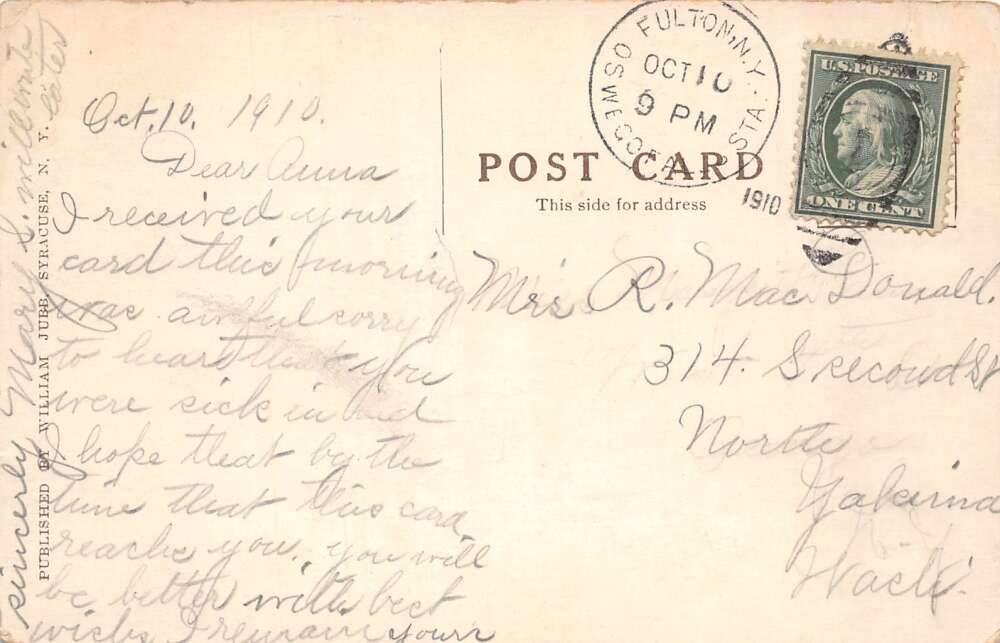 Oct. 10. 1910.
Dear Anna
I received your
card this morning
was awful sorry
to hear that you
were sick in bed
I hope that by the
time that this card
reache you. you will
be better with best
wishs I remain yours
sincerly Mary S.
later
PUBLISHED BY WILLIAM JUBB, SYRACUSE, N. Y.
FULTON, N.Y.
OSWEGO FALLS STA.
OCT 10
9 PM
1910
U.S. POSTAGE
ONE CENT
POST CARD
This side for address
Mrs R. Mac Donald.
314. S second St
North
Yakima
Wash.